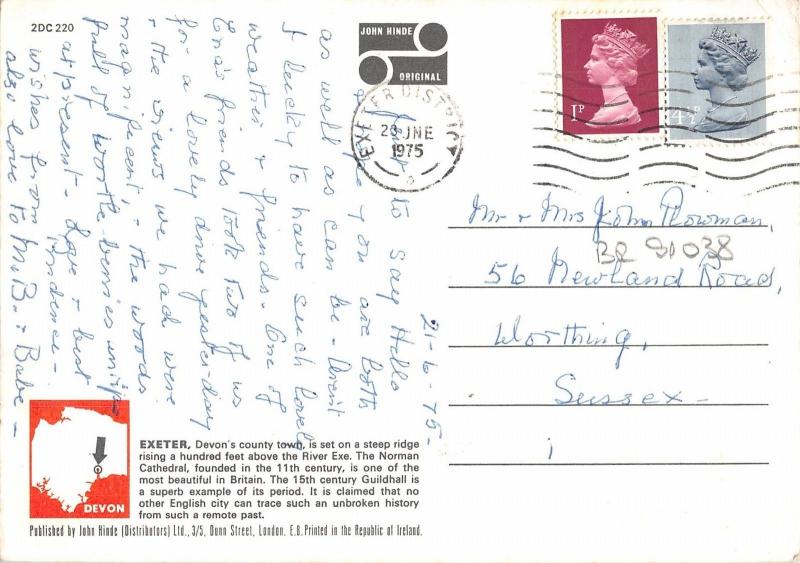 2DC 220
JOHN HINDE
ORIGINAL
EXETER DISTRICT
JNE
1975
1P
4½P
21-6-75-
Just to say Hello
& hope you are both
as well as can be - Aren't
I lucky to have such lovely
weather & friends. One of
friends took two of us
for a lovely drive yesterday
& the views we had were
magnificent, - the woods
full of
at present - Love & best
wishes from
also love to Mr B. & Babe -
Mr & Mrs John Plowman,
BR 91038
56 Newland Road,
Worthing,
Sussex -
DEVON
EXETER, Devon's county town, is set on a steep ridge
rising a hundred feet above the River Exe. The Norman
Cathedral, founded in the 11th century, is one of the
most beautiful in Britain. The 15th century Guildhall is
a superb example of its period. It is claimed that no
other English city can trace such an unbroken history
from such a remote past.
Published by John Hinde (Distributors) Ltd., 3/5, Dunn Street, London. E.8. Printed in the Republic of Ireland.